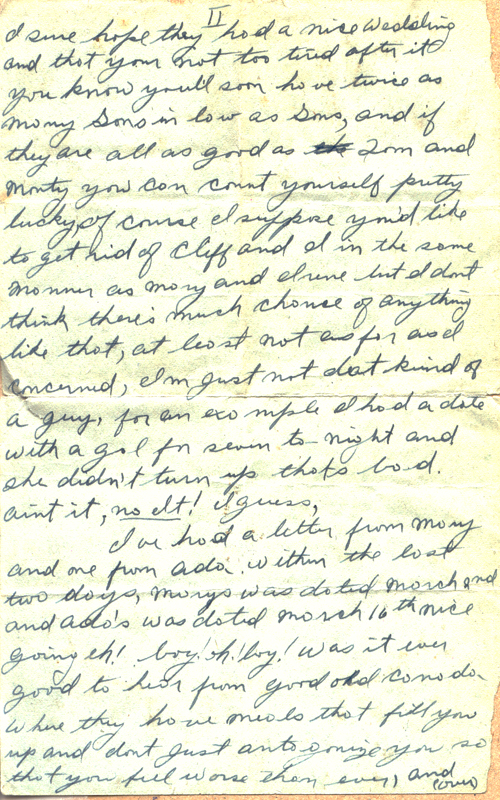 II
I sure hope they had a nice wedding
and that your not too tired after it
you know you'll soon have twice as
many Sons in law as Sons, and if
they are all as good as Tom and
Monty you can count yourself pretty
lucky, of course I suppose you'd like
to get rid of Cliff and I in the same
manner as Mary and Irene but I dont
think there's much chance of anything
like that, at least not as far as I
concerned, I'm just not that kind of
a guy, for an example I had a date
with a gal for seven to-night and
she didn't turn up thats bad.
aint it, no It! I guess,
I've had a letter from Mary
and one from Ada. within the last
two days, Marys was dated March 2nd
and Ada's was dated March 16th nice
going eh! boy! oh! boy! was it ever
good to hear from good old Canada
where they have meals that fill you
up and dont just antagonize you so
that you feel worse than ever, and
(over)